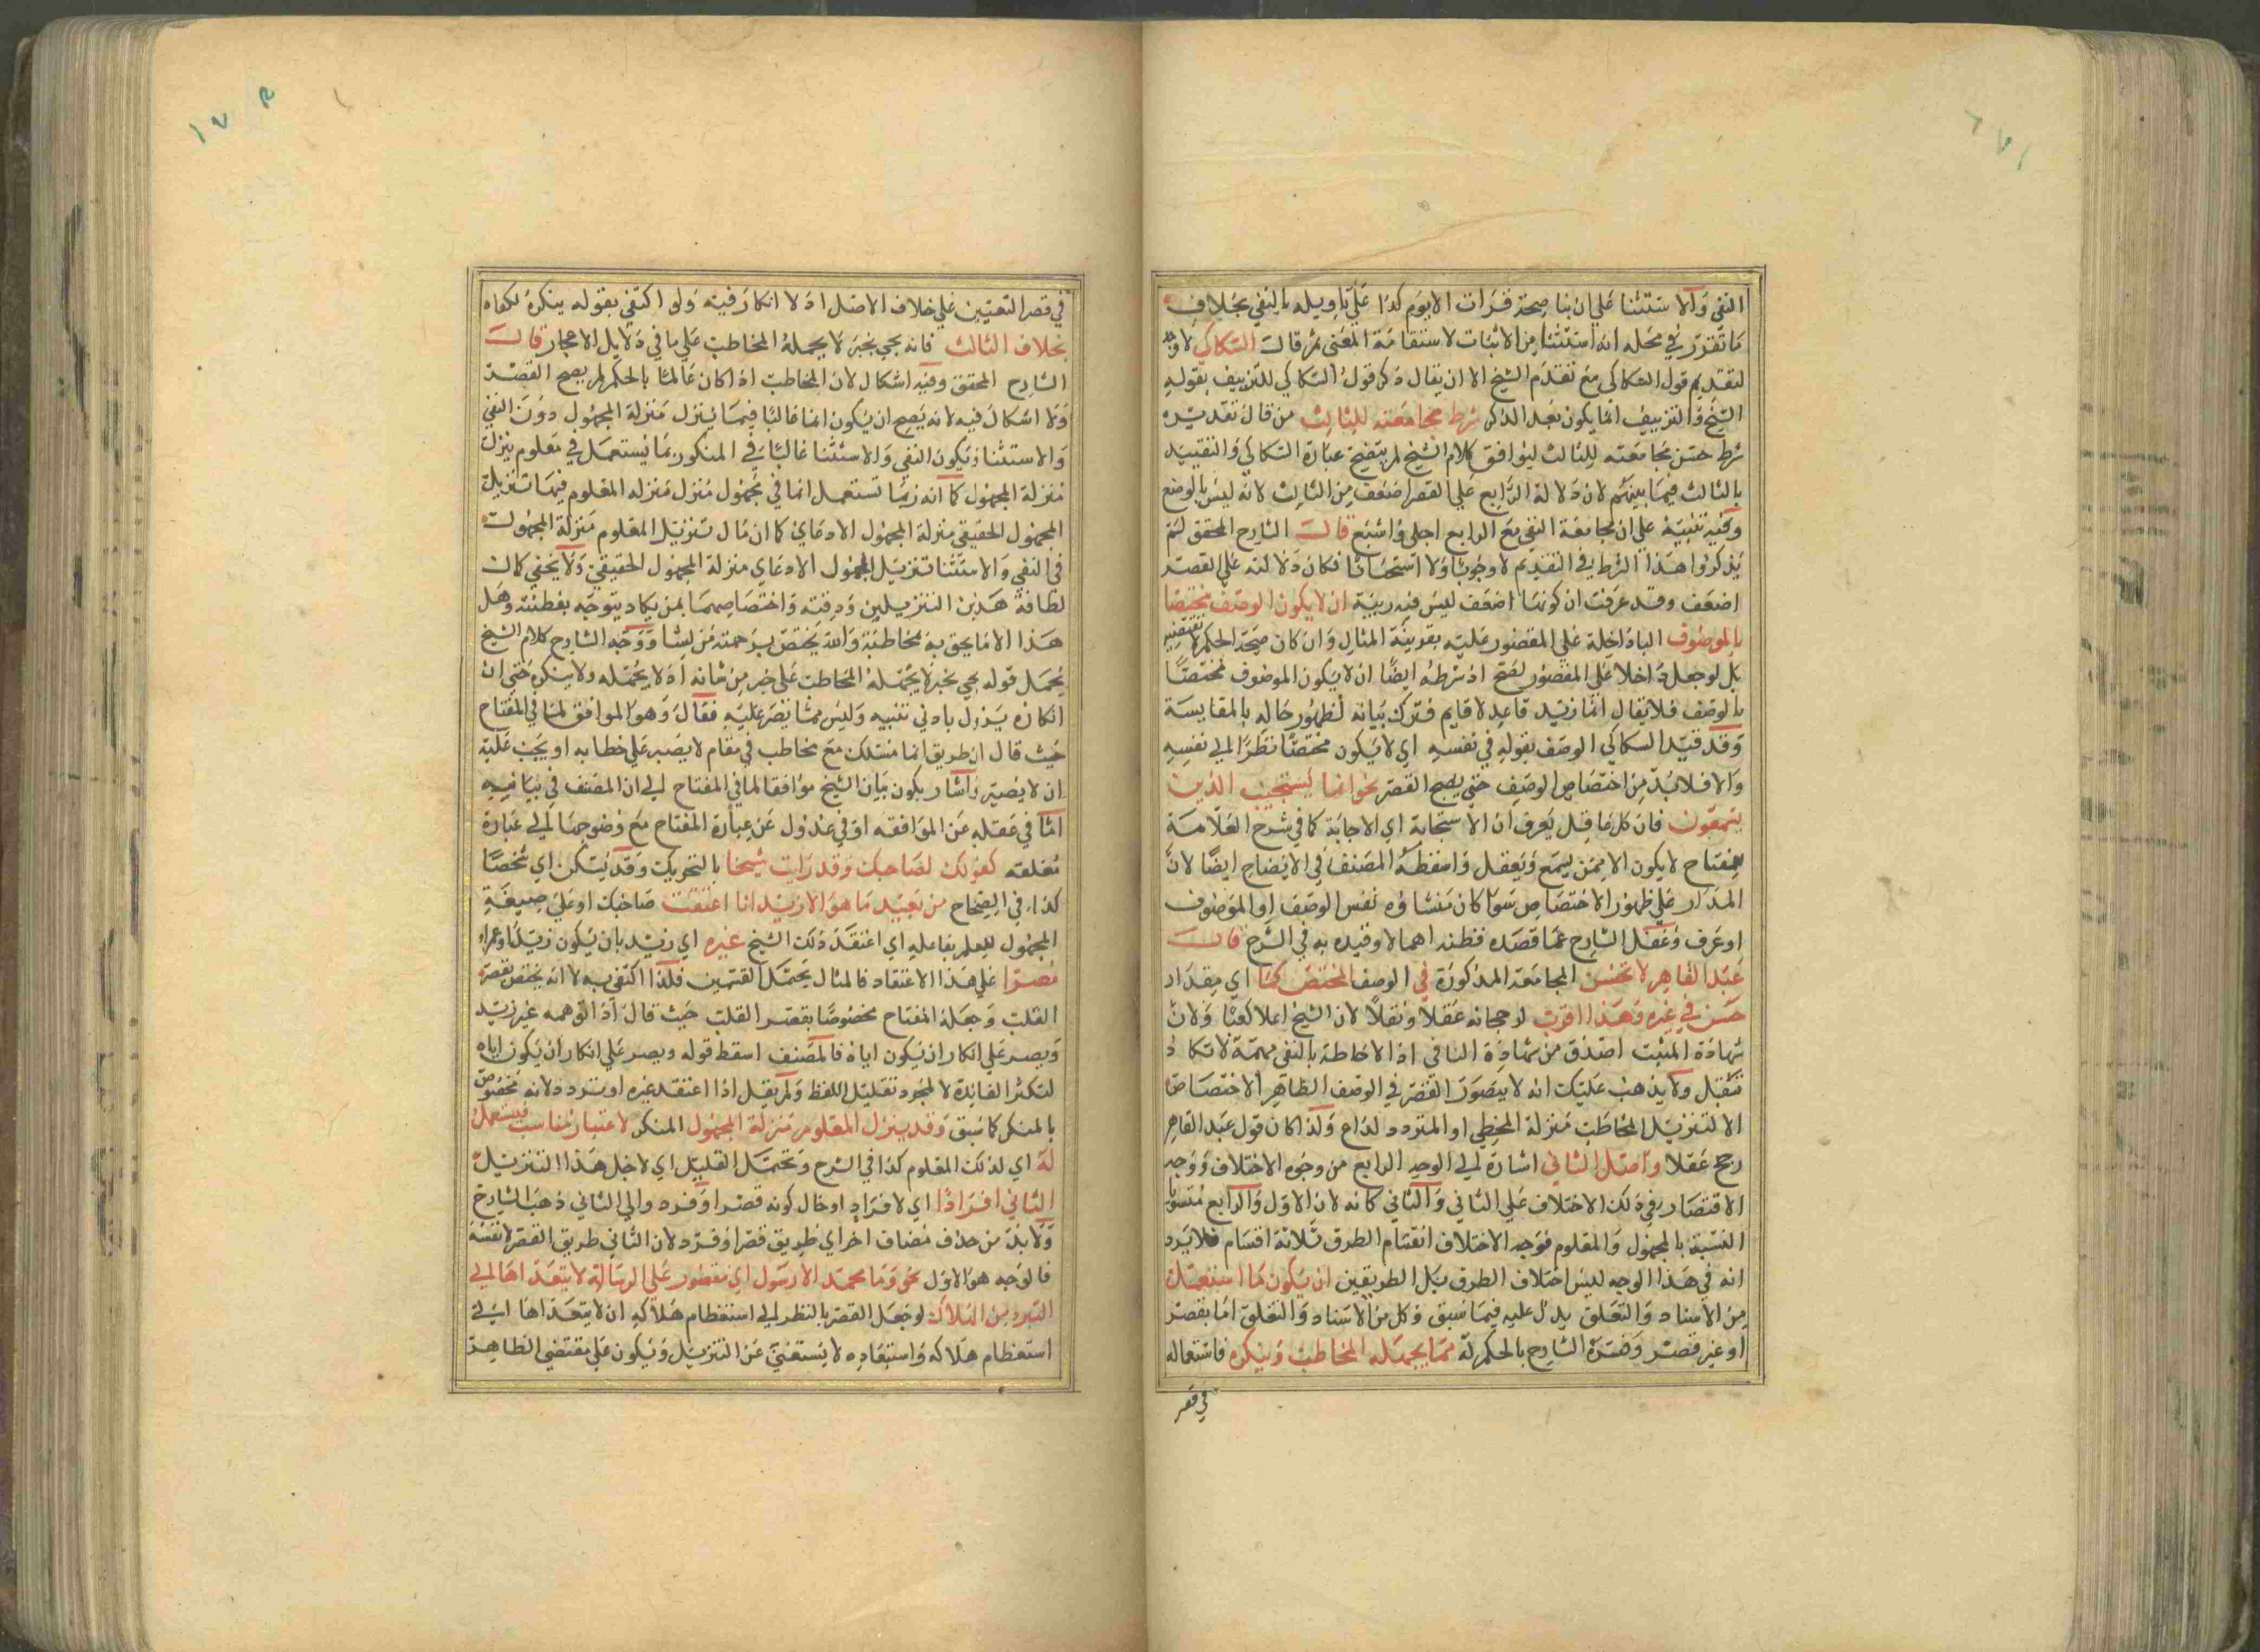 النفي والاستثنا علي ان بنا صحة قرات الا يوم كذا علي تاويله بالنفي بخلاف
ما تقرر في محله انه استثنا من الاثبات لاستقامة المعنى ثم قال السكاكي لا وجه
لتقديم قول السكاكي مع تقدم الشيخ الا ان يقال ذكر قول السكاكي للتزييف بقوله
الشيخ والتزييف انما يكون بعد الذكر شرط مجامعته للثالث من قال تقديره
شرط حسن مجامعته للثالث ليوافق كلام الشيخ لم يتضح عبارة السكاكي والتقييد
بالثالث فيما بينهم لان دلالة الرابع علي القصر اضعف من الثالث لانه ليس بالوضع
وفيه تنبيه علي ان مجامعة النفي مع الرابع اجلى واشبع قال الشارح المحقق لم
يذكروا هذا الشرط في التقديم لا وجوبا ولا استحسانا فكان دلالته علي القصر
اضعف وقد عرفت ان كونها اضعف ليس فيه ريبة ان لا يكون الوصف مختصا
بالموصوف البا داخلة علي المقصور عليه بقرينة المثال وان كان صحة الحكم لا تقتضيه
بل لو جعل داخلا علي المقصور لصح اذ شرطه ايضا ان لا يكون الموصوف مختصا
بالوصف فلا يقال انما زيد قاعد لا قايم فترك بيانه لظهور حاله بالمقايسة
وقد قيد السكاكي الوصف بقوله في نفسه اي لا يكون مختصا نظرا الي نفسه
والا فلا بد من اختصاص الوصف حتي يصح القصر نحو انما يستجيب الذين
يسمعون فان كل عاقل يعرف ان الاستجابة اي الاجابة كما في شرح العلامة
للمفتاح لا يكون الا ممن يسمع ويعقل واسقطه المصنف في الايضاح ايضا لان
المدار علي ظهور الاختصاص سوا كان منشاؤه نفس الوصف او الموصوف
او عرف وغفل الشارح عما قصده فظنه اهمالا وقيده به في الشرح قال
عبد القاهر لا تحسن المجامعة المذكورة في الوصف المختص كما اي مقدار
حسن في غيره وهذا اقرب لرجحانه عقلا ونقلا لان الشيخ اعلا كعبا ولان
شهادة المثبت اصدق من شهادة النافي اذ الاحاطة بالنفي مهمة لا تكاد
تقبل ولا يذهب عليك انه لا يتصور القصر في الوصف الظاهر الاختصاص
الا لتنزيل المخاطب منزلة المخطي او المتردد لداع ولذا كان قول عبد القاهر
رجح عقلا واصل الثاني اشارة الي الوجه الرابع من وجوه الاختلاف ووجه
الاقتصار في ذلك الاختلاف علي الثاني والثالث كانه لان الاول والرابع متسويا
النسبة بالمجهول والمعلوم فوجه الاختلاف انقسام الطرق ثلاثة اقسام فلا يرد
انه في هذا الوجه ليس اختلاف الطرق بل الطريقين ان يكون ما استعمل
من الاسناد والتعلق يدل عليه فيما سبق وكل من الاسناد والتعلق اما بقصر
او غير قصر وفسره الشارح بالحكم له مما يجهله المخاطب وينكره فاستعماله
في قصر
في قصر التعيين علي خلاف الاصل اذ لا انكار فيه ولو اكتفي بقوله ينكره لكفاه
بخلاف الثالث فانه يجي بخبر لا يجهله المخاطب علي ما في دلايل الاعجاز قال
الشارح المحقق وفيه اشكال لان المخاطب اذا كان عالما بالحكم لم يصح القصر
ولا اشكال فيه لانه يصح ان يكون انما غالبا فيما ينزل منزلة المجهول دون النفي
والاستثنا ويكون النفي والاستثنا غالبا في المنكور بما يستعمل في معلوم ينزل
منزلة المجهول كما انه ربما تستعمل انما في مجهول منزل منزلة المعلوم فيها تنزيل
المجهول الحقيقي منزلة المجهول الادعاي كما ان مال تنزيل المعلوم منزلة المجهول
في النفي والاستثنا تنزيل المجهول الادعاي منزلة المجهول الحقيقي ولا يخفي كمال
لطافة هذين التنزيلين ودقته واختصاصهما بمن يكاد يتوجه بفطنته وهل
هذا الا ما يحق به مخاطبته والله يختص برحمته من يشا ووجه الشارح كلام الشيخ
يحمل قوله يجي بخبر لا يجهله المخاطب علي خبر من شانه اذ لا يجهله ولا ينكره حتي ان
انكاره يزول بادني تنبيه وليس مما يصر عليه فقال وهو الموافق لما في المفتاح
حيث قال ان طريق انما مسلك مع مخاطب في مقام لا يصر علي خطابه او يجب عليه
ان لا يصير واشار بكون بيان الشيخ موافقا لما في المفتاح الي ان المصنف في بيانه
اما في غفلة عن الموافقة او في عدول عن عبارة المفتاح مع وضوحها الي عبارة
مغلقة كقولك لصاحبك وقد رايت شبحا بالتحريك وقد يسكن اي شخصا
كذا في الصحاح من بعيد ما هو الا زيد اذا اعتقد صاحبك او علي صيغة
المجهول للعلم بفاعله اي اعتقد ذلك الشيخ غيره اي زيد بان يكون زيدا وعمرا
مصرا علي هذا الاعتقاد فالمثال يحتمل القسمين فلذا اكتفي به لا انه يختص بقصر
القلب وجعله المفتاح مخصوصا بقصر القلب حيث قال اذا توهمه غير زيد
ويصر علي انكار ان يكون اياه فالمصنف اسقط قوله ويصر علي انكار ان يكون اياه
لتكثر الفايدة لا لمجرد تقليل اللفظ ولم يقل اذا اعتقد غيره او تردد لانه مخصوص
بالمنكر كما سبق وقد ينزل المعلوم منزلة المجهول المنكر لاعتبار مناسب فيستعمل
له اي لذلك المعلوم كذا في الشرح وتحتمل القليل اي لاجل هذا التنزيل
الثاني افرادا اي لافراد او حال كونه قصرا وفرد والي الثاني ذهب الشارح
ولا بد من حذف مضاف اخر اي طريق قصر او فرد لان الثاني طريق القصر لا نفسه
فالوجه هو الاول نحو وما محمد الا رسول اي مقصور علي الرسالة لا يتعداها الي
التبري من الهلاك لو جعل القصر بالنظر الي استعظام هلاكه ان لا يتعداها الي
استعظام هلاكه واستبعاده لا يستغني عن التنزيل ويكون علي مقتضي الظاهر